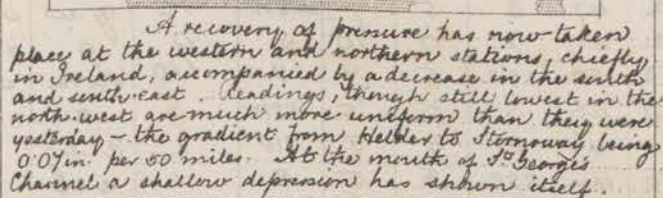 A recovery of pressure has now taken
place at the western and northern stations, chiefly
in Ireland, accompanied by a decrease in the south
and south-east. Readings, though still lowest in the
north-west are much more uniform than they were
yesterday - the gradient from Helder to Stornoway being
0.07in. per 50 miles. At the mouth of St. George's
Channel a shallow depression has shown itself.